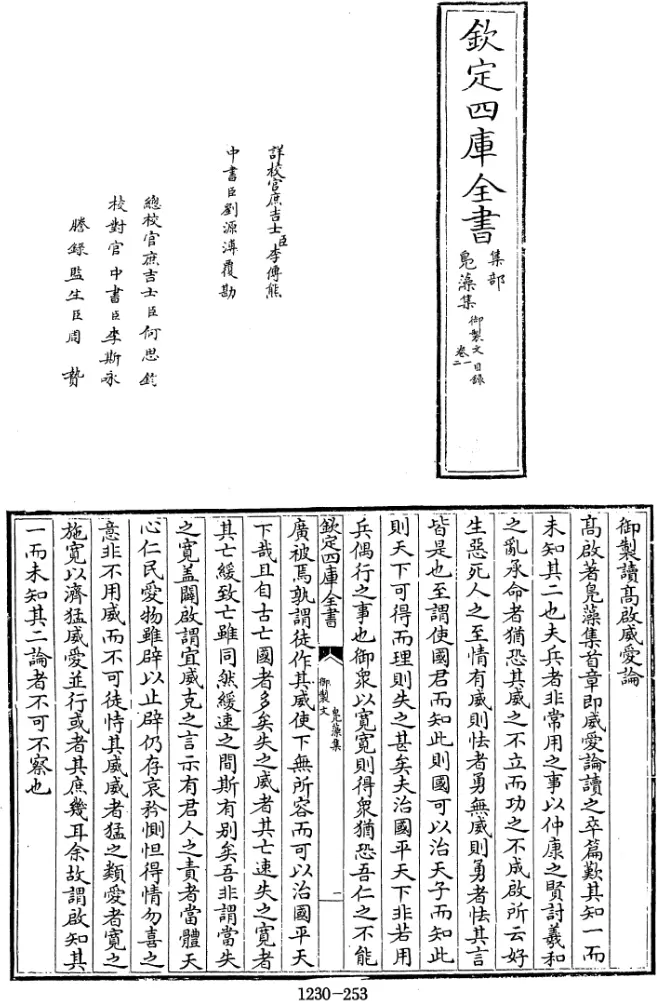 欽定四庫全書
集部
鳬藻集 御製文 目錄
卷一
二
詳校官庶吉士臣李傳熊
中書臣劉源溥覆勘
總校官庶吉士臣何思鈞
校對官中書臣李斯咏
謄錄監生臣周贄
御製讀髙啟威愛論
髙啟著鳬藻集首章即威愛論讀之卒篇歎其知一而
未知其二也夫兵者非常用之事以仲康之賢討羲和
之亂承命者猶恐其威之不立而功之不成啟所云好
生惡死人之至情有威則怯者勇無威則勇者怯其言
皆是也至謂使國君而知此則國可以治天子而知此
則天下可得而理則失之甚矣夫治國平天下非若用
兵偶行之事也御衆以寛寛則得衆猶恐吾仁之不能
欽定四庫全書
鳬藻集
御製文
一
廣被焉孰謂徒作其威使下無所容而可以治國平天
下哉且自古亡國者多矣失之威者其亡速失之寛者
其亡緩致亡雖同然緩速之間斯有别矣吾非謂當失
之寛盖闢啟謂宜威克之言示有君人之責者當體天
心仁民愛物雖辟以止辟仍存哀矜惻怛得情勿喜之
意非不用威而不可徒恃其威威者猛之類愛者寛之
施寛以濟猛威愛並行或者其庶幾耳余故謂啟知其
一而未知其二論者不可不察也
1230-253